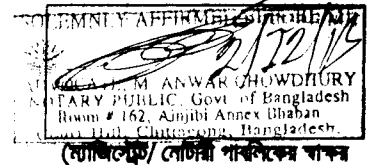 SOLEMNLY AFFIRMED BEFORE ME
2/12/13
M. ANWAR CHOWDHURY
NOTARY PUBLIC, Govt. of Bangladesh
Room # 162, Ainjibi Annex Bhaban
Hill, Chittagong, Bangladesh.
(ম্যাজিস্ট্রেট/ নোটারী পাবলিকের স্বাক্ষর